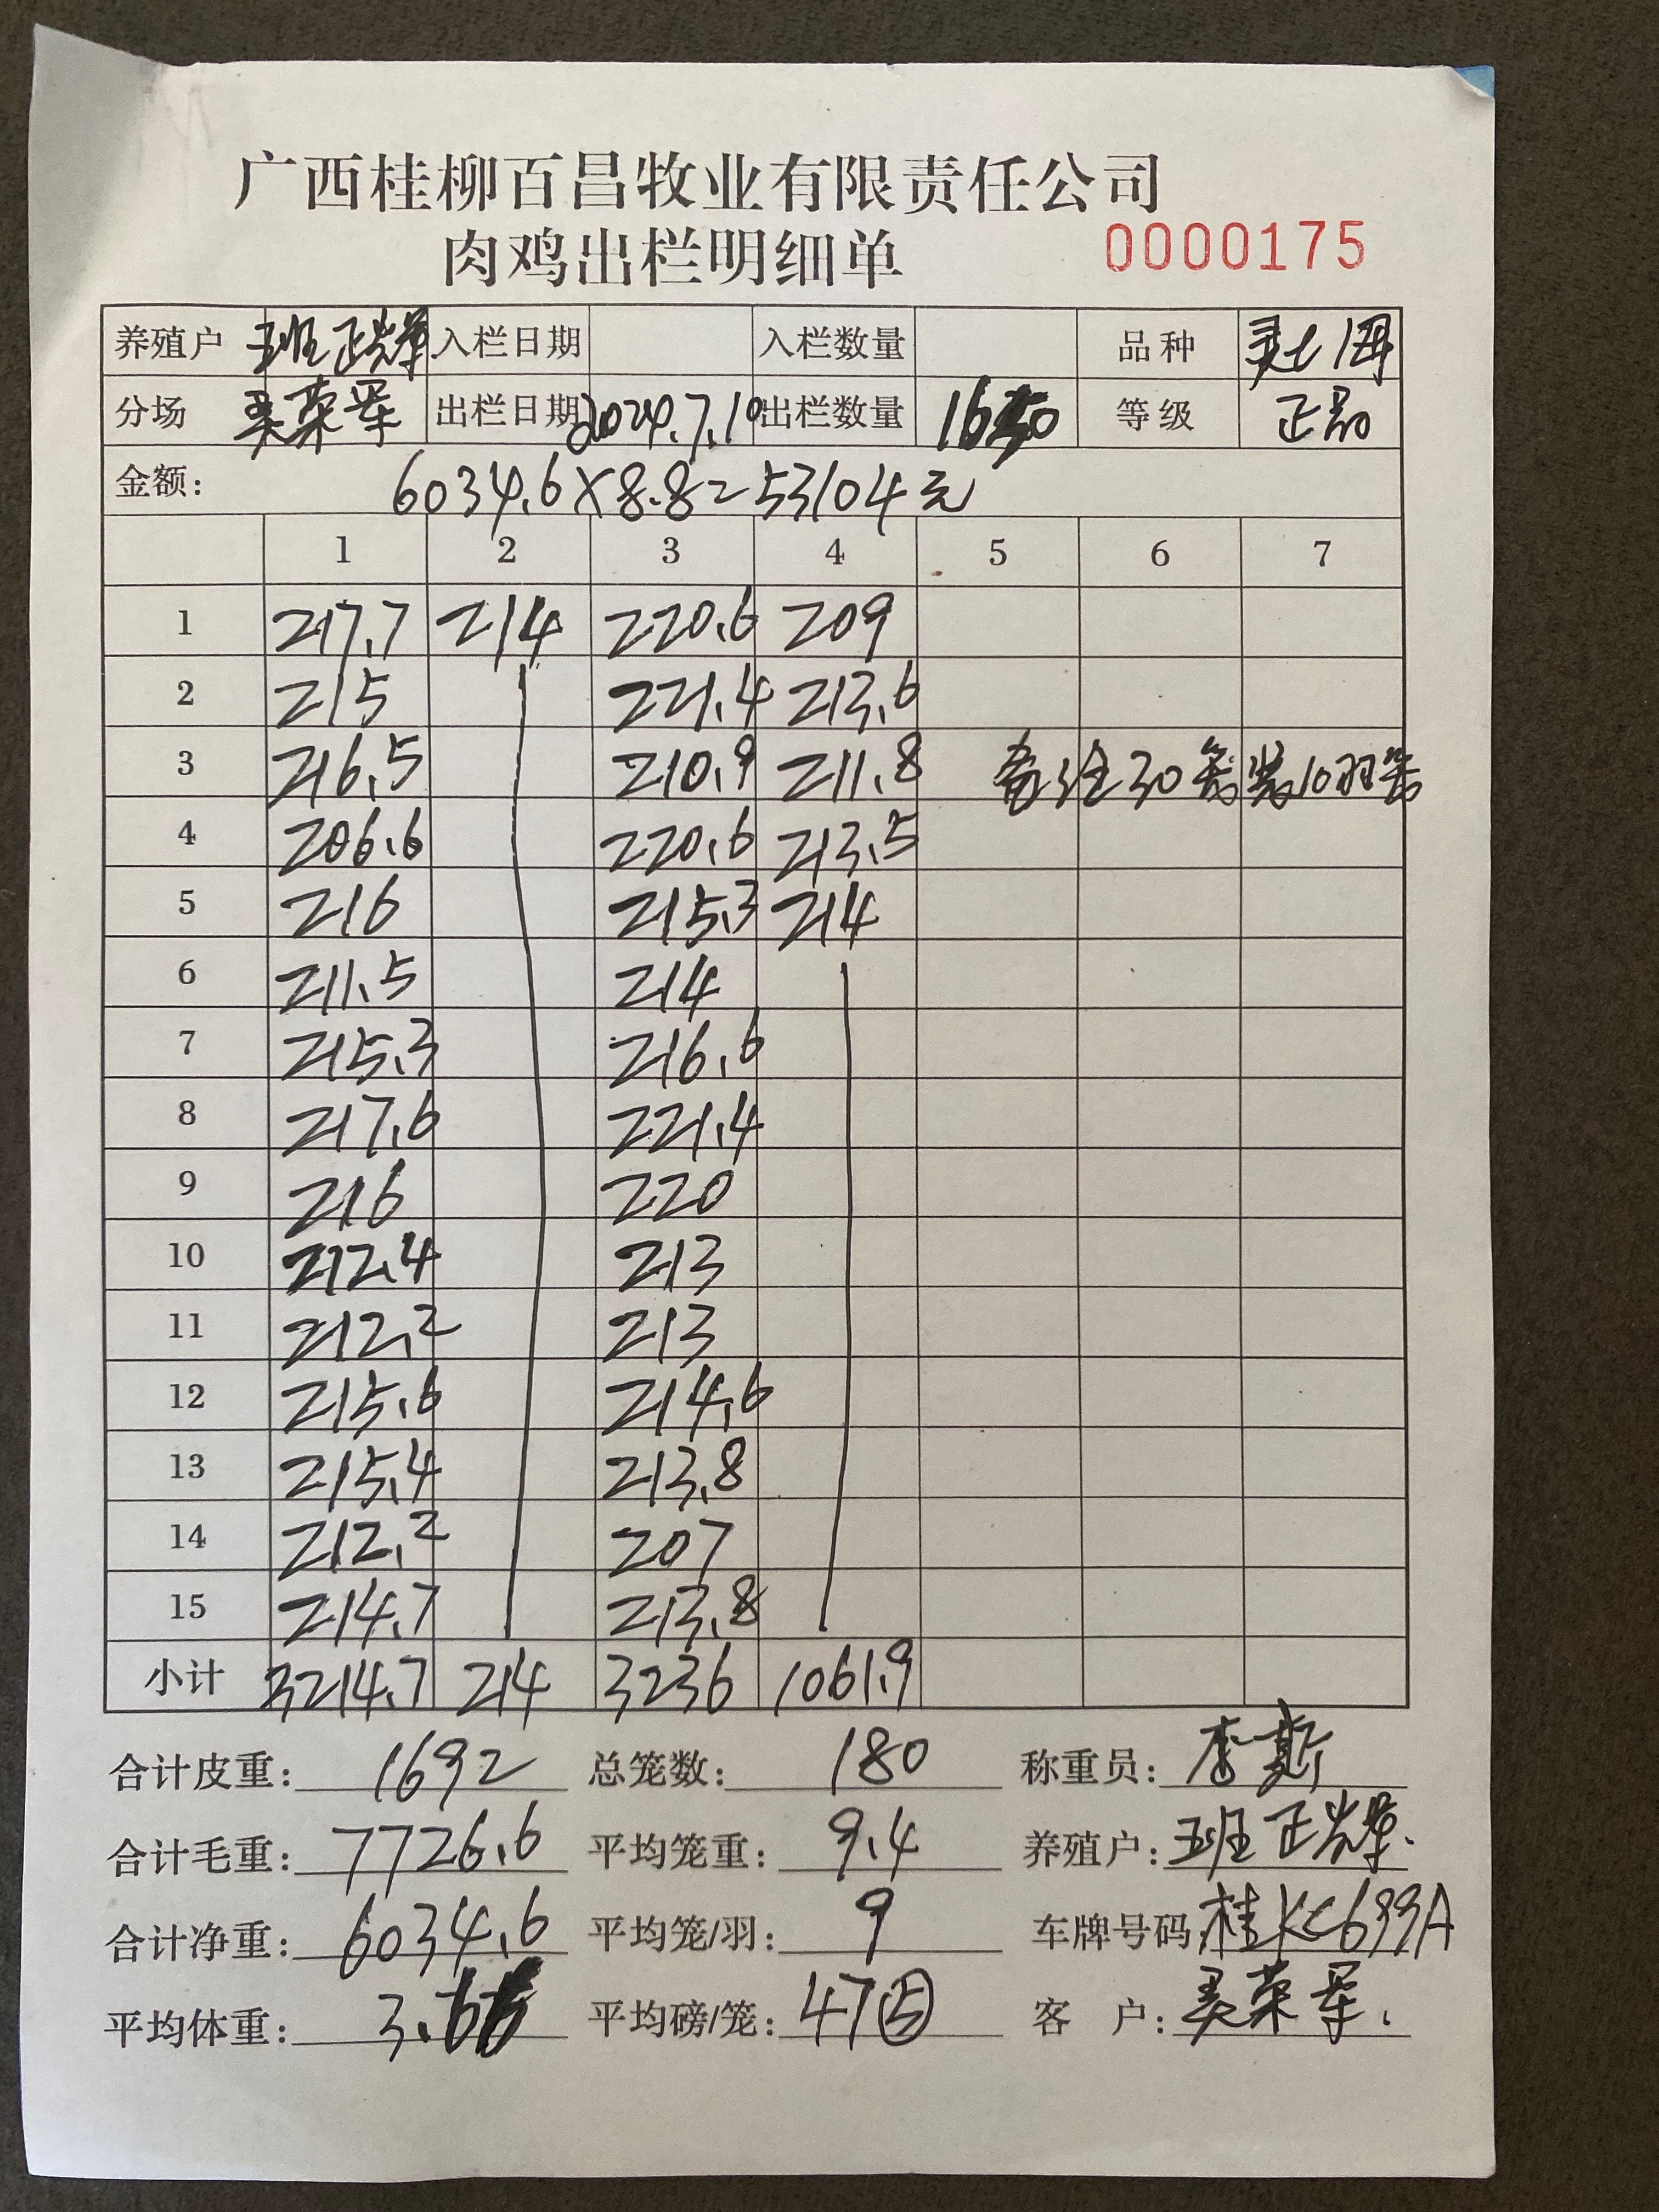 广西桂柳百昌牧业有限责任公司
肉鸡出栏明细单 0000175
养殖户 班正辉 入栏日期 入栏数量 品种
分场 吴荣军 出栏日期 2024.7.10 出栏数量 1650 等级 正品
金额: 6034.6×8.8=53104元
1 2 3 4 5 6 7
1 217.7 214 220.6 209
2 215 221.4 213.6
3 216.5 210.9 211.8 备注30笼装10羽/笼
4 206.6 220.6 213.5
5 216 215.3 214
6 211.5 214
7 215.3 216.6
8 217.6 221.4
9 216 220
10 212.4 213
11 212.2 213
12 215.6 214.6
13 215.4 213.8
14 212.2 207
15 214.7 213.8
小计 3214.7 214 3236 1061.9
合计皮重: 1692 总笼数: 180 称重员: 李斯
合计毛重: 7726.6 平均笼重: 9.4 养殖户: 班正辉.
合计净重: 6034.6 平均笼/羽: 9 车牌号码 桂KC699A
平均体重: 3.66 平均磅/笼: 47⑤ 客 户: 吴荣军.